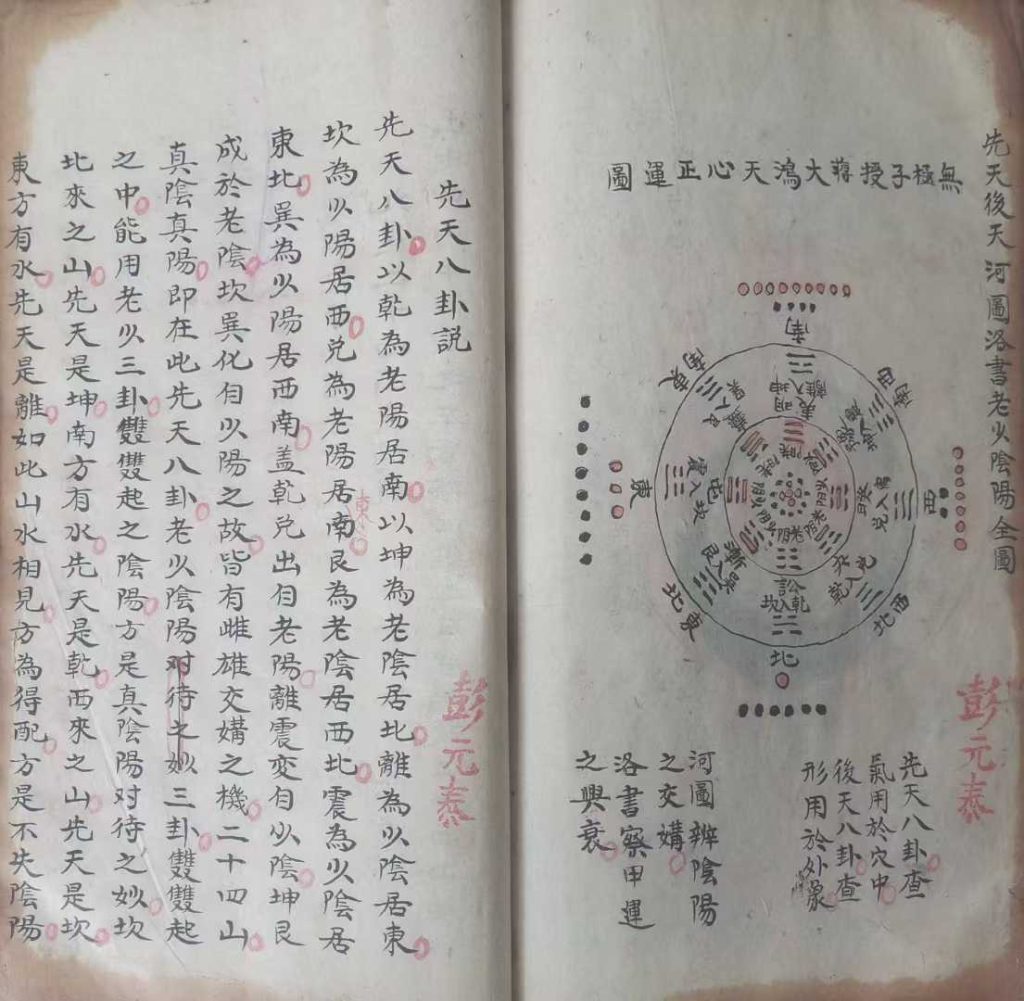 先天後天河圖洛書老少陰陽全圖
彭元泰
無極子授蔣大鴻天心正運圖
南
東南
西南
東
西
東北
西北
北
離入坤
明夷
震入坎
屯
艮入巽
漸
乾入坎
訟
兌入乾
睽
先天八卦查
氣用於穴中
後天八卦查
形用於外象
河圖辨陰陽
之交媾
洛書察甲運
之興衰
先天八卦説
彭元泰
先天八卦以乾為老陽居南以坤為老陰居北離為少陰居東
坎為少陽居西兌為老陽居南東艮為老陰居西北震為少陰居
東北巽為少陽居西南盖乾兌出自老陽離震变自少陰坤艮
成於老陰坎巽化自少陽之故皆有雌雄交媾之機二十四山
真陰真陽即在此先天八卦老少陰陽对待之妙三卦雙雙起
之中能用老少三卦雙雙起之陰陽方是真陰陽对待之妙坎
北來之山先天是坤南方有水先天是乾西來之山先天是坎
東方有水先天是離如此山水相見方為得配方是不失陰陽